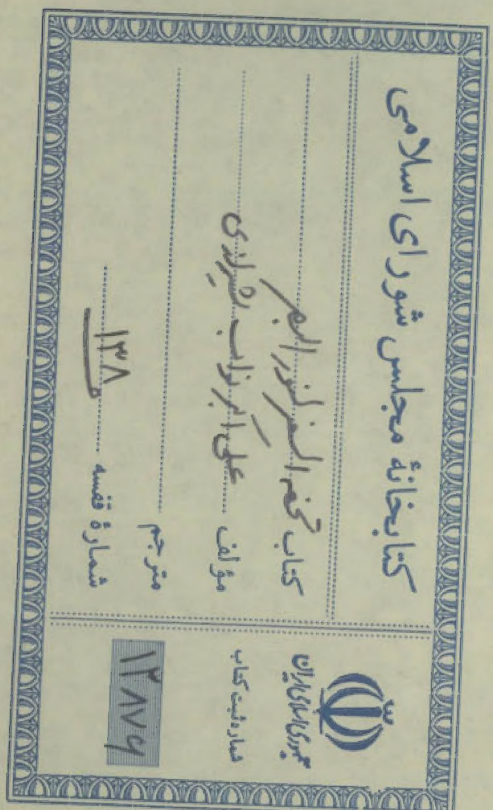 کتابخانهٔ مجلس شورای اسلامی
کتاب تحفة السفر لنور البصر
مؤلف علی اکبر نواب شیرازی
مترجم
شمارهٔ قفسه ۱۳۸
جمهوری اسلامی ایران
شماره ثبت کتاب
۱۲۸۷۶